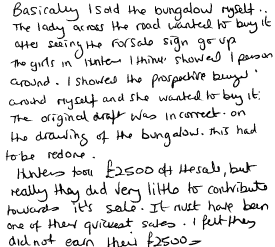 Basically I sold the bungalow myself.
The lady across the road wanted to buy it
after seeing the forsale sign go up
The girls in Hunters I think showed 1 person
around. I showed the prospective buyer
around myself and she wanted to buy it.
The original draft was incorrect. on
the drawing of the bungalow. this had
to be redone.
Hunters took £2500 off the sale, but
really they did very little to contribute
towards it's sale. It must have been
one of their quickest sales. I felt they
did not earn their £2500